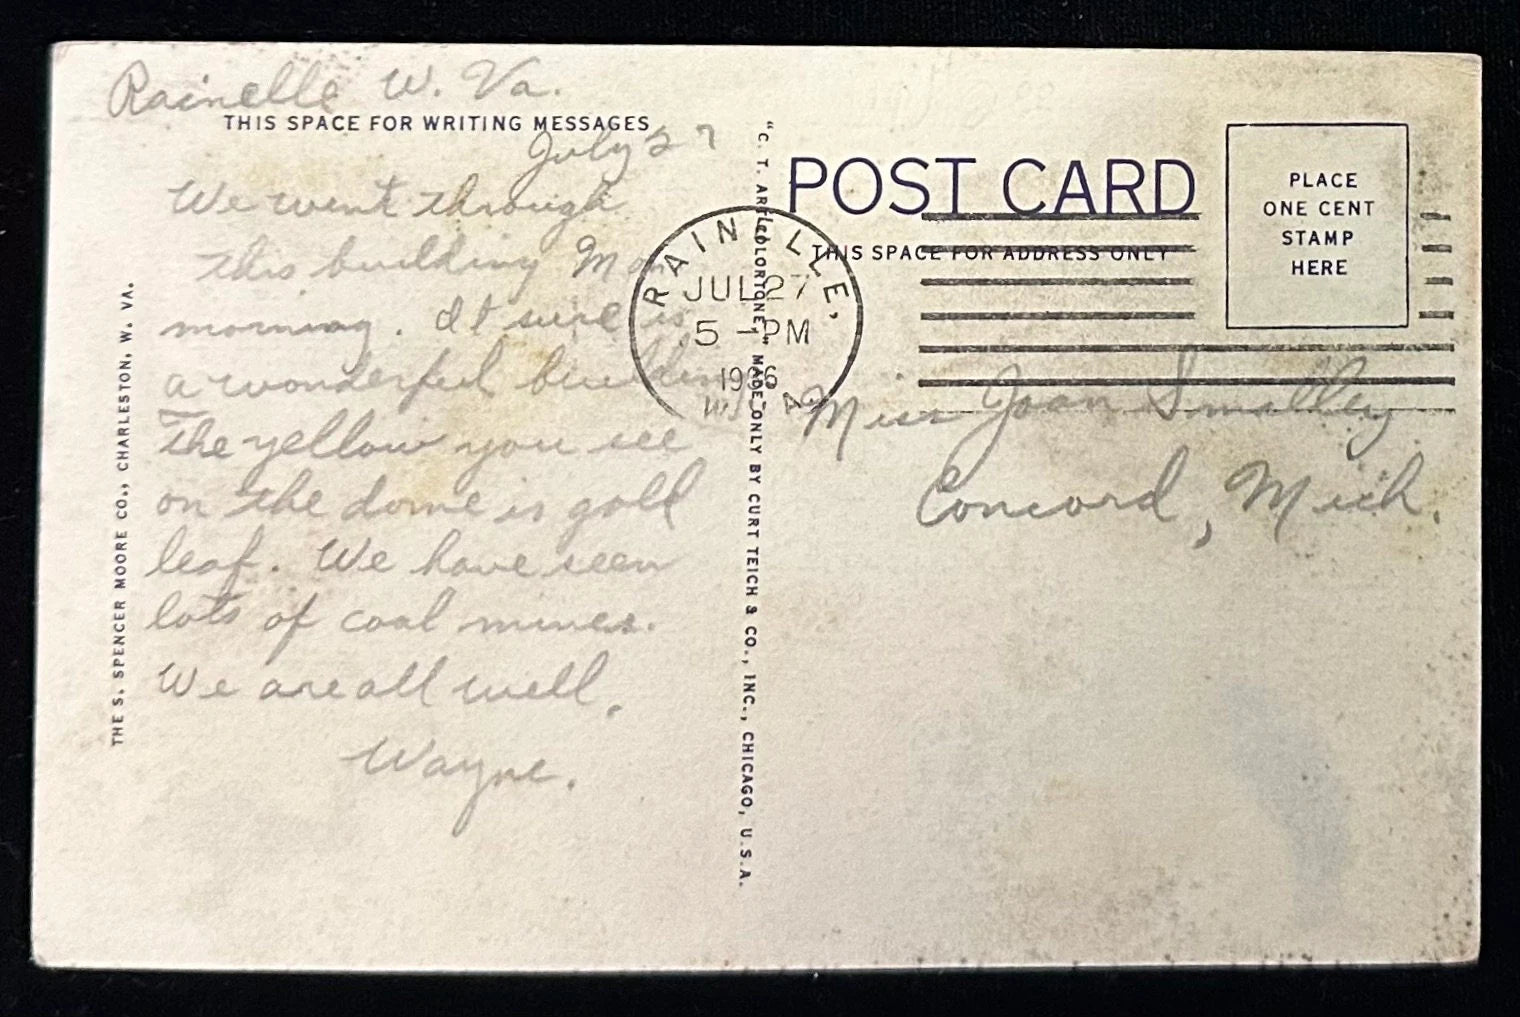 Rainelle W. Va.
THIS SPACE FOR WRITING MESSAGES
July 27
We went through
this building Mon
morning. It sure is
a wonderful building
The yellow you see
on the dome is gold
leaf. We have seen
lots of coal mines.
We are all well.
Wayne.
THE S. SPENCER MOORE CO., CHARLESTON, W. VA.
"C. T. ART-COLORTONE," MADE ONLY BY CURT TEICH & CO., INC., CHICAGO, U.S.A.
POST CARD
THIS SPACE FOR ADDRESS ONLY
PLACE
ONE CENT
STAMP
HERE
RAINELLE,
JUL 27
5 - PM
W. VA.
Miss Joan Smalley
Concord, Mich.